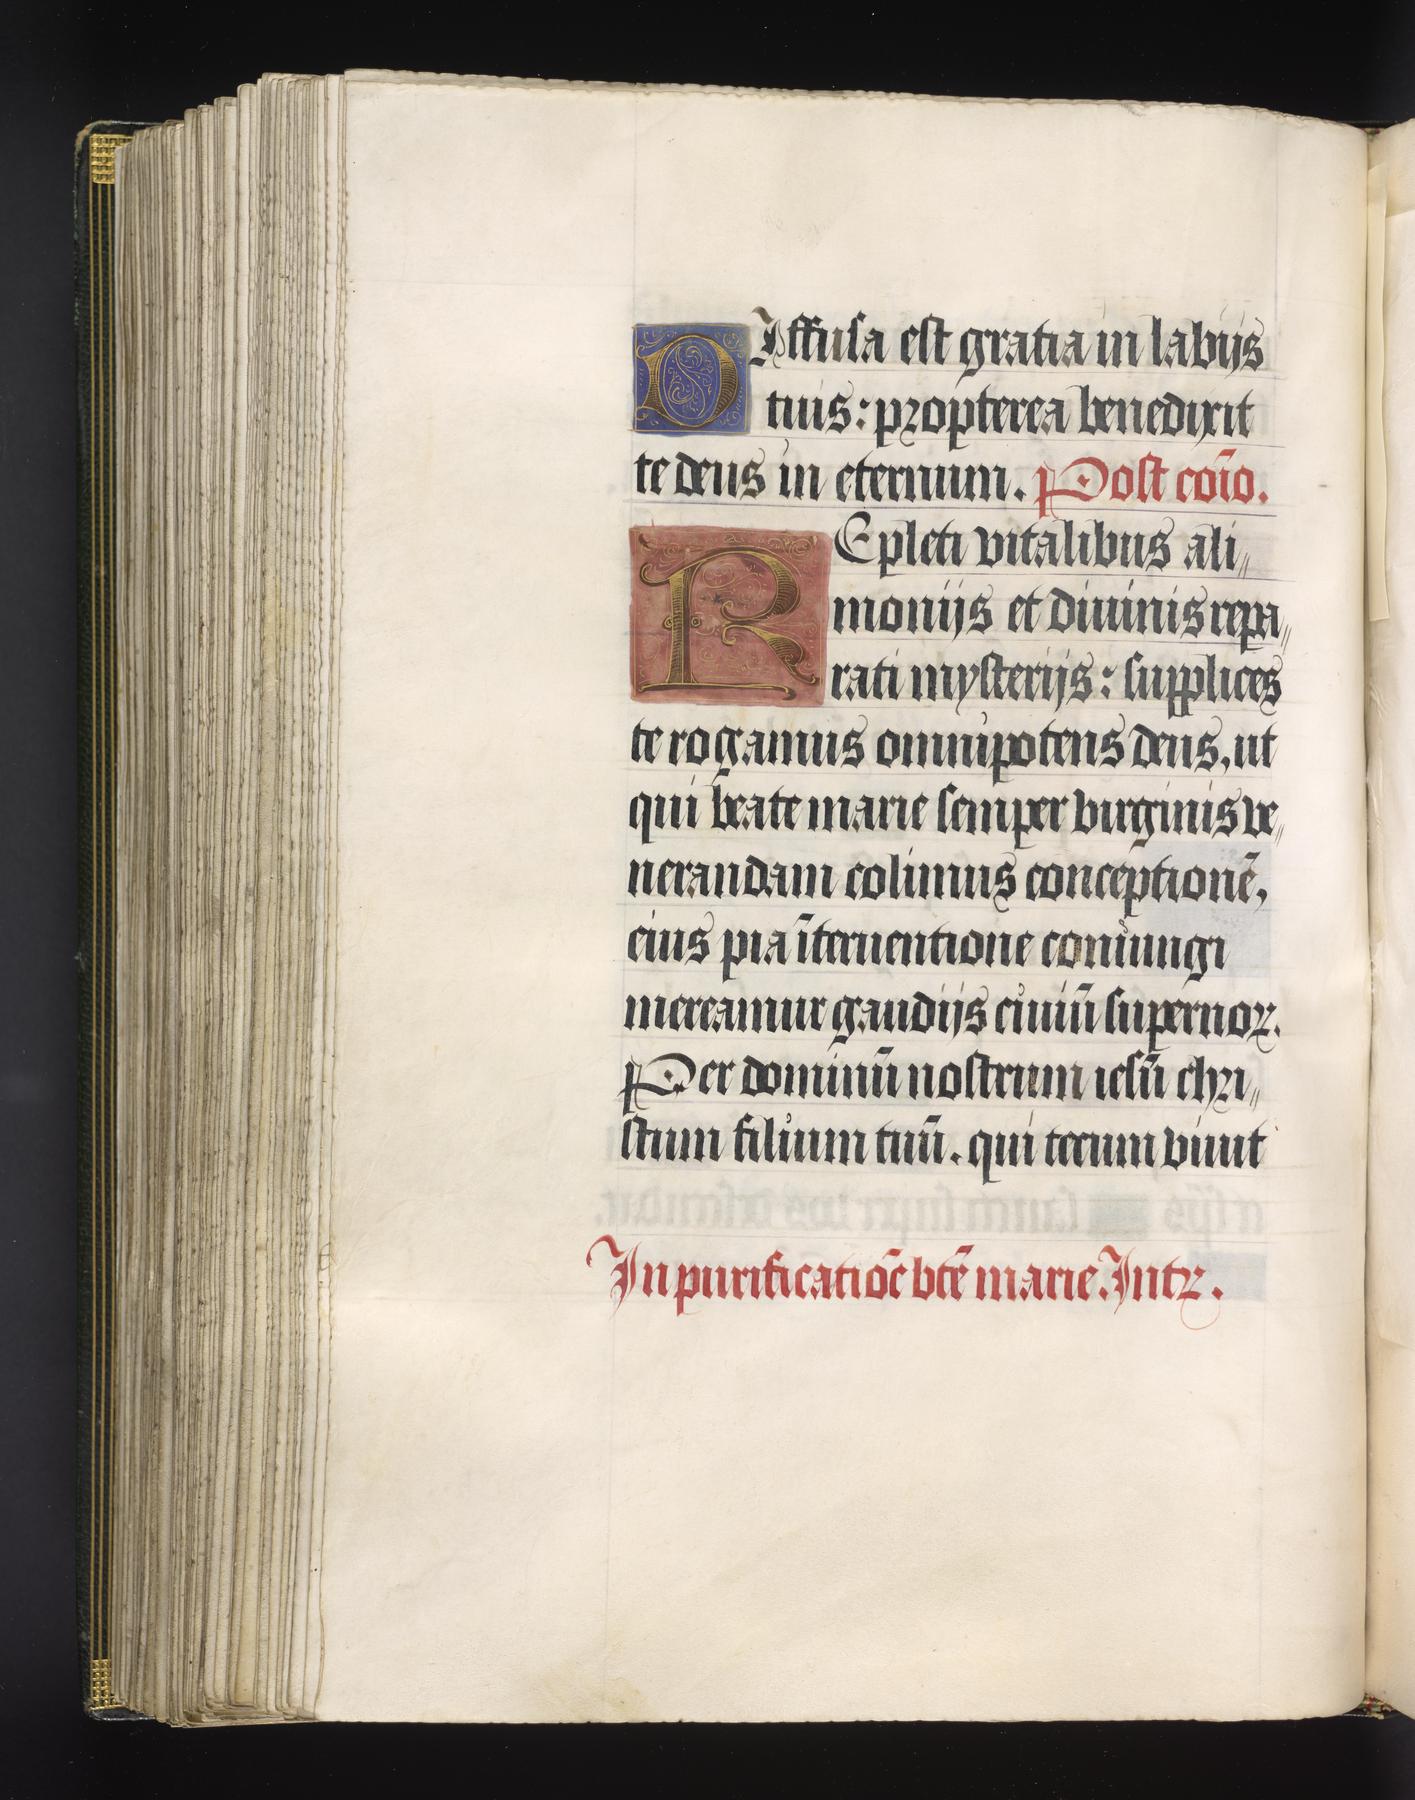 DIffusa est gratia in labijs
tuis: propterea benedixit
te deus in eternum. Post cōīo.
REpleti vitalibus ali〃
monijs et diuinis repa〃
rati mysterijs: supplices
te rogamus omnipotens deus, ut
qui beate marie semper virginis ve〃
nerandam colimus conceptionē,
eius pia īteruentione coniungi
mereamur gaudijs ciuiū supernoꝝ.
Per dominū nostrum iesū chri〃
stum filium tuū. qui tecum viuit
In purificatiōe btē marie. Intꝝ.